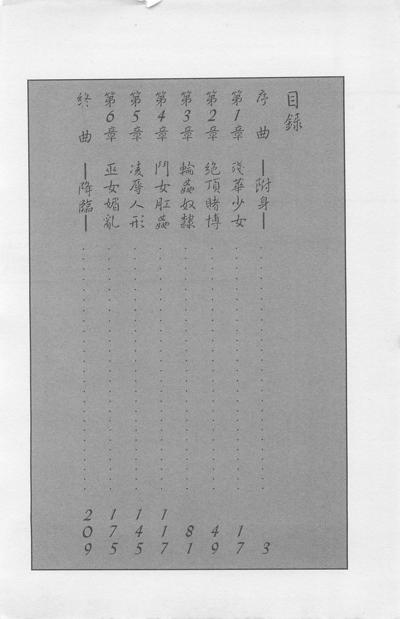 目錄
序曲 —附身— 3
第1章 殘華少女 17
第2章 絕頂賭博 49
第3章 輪姦奴隸 81
第4章 鬥女肛姦 117
第5章 凌辱人形 141
第6章 巫女媚亂 175
終曲 —降臨— 209